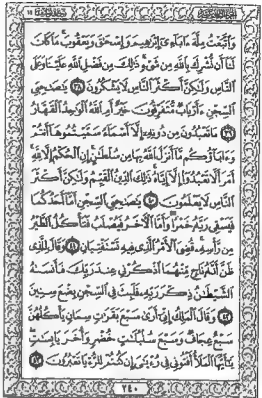 وَٱتَّبَعْتُ مِلَّةَ ءَابَآءِىٓ إِبْرَٰهِيمَ وَإِسْحَٰقَ وَيَعْقُوبَ مَا كَانَ
لَنَآ أَن نُّشْرِكَ بِٱللَّهِ مِن شَىْءٍ ذَٰلِكَ مِن فَضْلِ ٱللَّهِ عَلَيْنَا وَعَلَى
ٱلنَّاسِ وَلَٰكِنَّ أَكْثَرَ ٱلنَّاسِ لَا يَشْكُرُونَ ٣٨ يَٰصَىٰحِبَىِ
ٱلسِّجْنِ ءَأَرْبَابٌ مُّتَفَرِّقُونَ خَيْرٌ أَمِ ٱللَّهُ ٱلْوَٰحِدُ ٱلْقَهَّارُ
٣٩ مَا تَعْبُدُونَ مِن دُونِهِۦٓ إِلَّآ أَسْمَآءً سَمَّيْتُمُوهَآ أَنتُمْ
وَءَابَآؤُكُم مَّآ أَنزَلَ ٱللَّهُ بِهَا مِن سُلْطَٰنٍ إِنِ ٱلْحُكْمُ إِلَّا لِلَّهِ
أَمَرَ أَلَّا تَعْبُدُوٓا۟ إِلَّآ إِيَّاهُ ذَٰلِكَ ٱلدِّينُ ٱلْقَيِّمُ وَلَٰكِنَّ أَكْثَرَ
ٱلنَّاسِ لَا يَعْلَمُونَ ٤٠ يَٰصَىٰحِبَىِ ٱلسِّجْنِ أَمَّآ أَحَدُكُمَا
فَيَسْقِى رَبَّهُۥ خَمْرًا وَأَمَّا ٱلْءَاخَرُ فَيُصْلَبُ فَتَأْكُلُ ٱلطَّيْرُ
مِن رَّأْسِهِۦ قُضِىَ ٱلْأَمْرُ ٱلَّذِى فِيهِ تَسْتَفْتِيَانِ ٤١ وَقَالَ لِلَّذِى
ظَنَّ أَنَّهُۥ نَاجٍ مِّنْهُمَا ٱذْكُرْنِى عِندَ رَبِّكَ فَأَنسَىٰهُ
ٱلشَّيْطَٰنُ ذِكْرَ رَبِّهِۦ فَلَبِثَ فِى ٱلسِّجْنِ بِضْعَ سِنِينَ
٤٢ وَقَالَ ٱلْمَلِكُ إِنِّىٓ أَرَىٰ سَبْعَ بَقَرَٰتٍ سِمَانٍ يَأْكُلُهُنَّ
سَبْعٌ عِجَافٌ وَسَبْعَ سُنۢبُلَٰتٍ خُضْرٍ وَأُخَرَ يَابِسَٰتٍ
يَٰٓأَيُّهَا ٱلْمَلَأُ أَفْتُونِى فِى رُءْيَٰىَ إِن كُنتُمْ لِلرُّءْيَا تَعْبُرُونَ ٤٣
٢٤٠